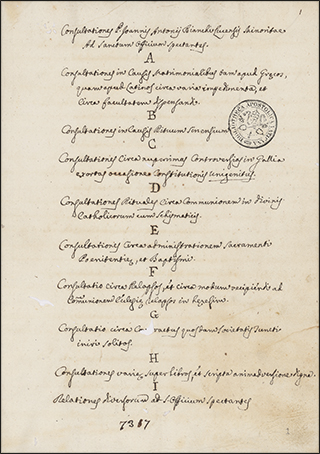 1
Consultationes P. Joannis Antonij Bianchi Lucensis Minoritae
Ad Sanctum Officium Spectantes.
A
Consultationes in Causis Matrimonialibus tam apud Grecos,
quam apud Latinos circa varia impedimenta, et
circa facultatem dispensandi.
B
Consultationes in Causis Rituum Sinensium
C
Consultationes Circa nuperrimas Controversias in Gallia
exortas occasione Constitutionis unigenitus.
D
Consultationes Rituales circa Communionem in divinis
Catholicorum cum Schismaticis.
E
Consultationes Circa administrationem Sacramenti
Poenitentiae, et Baptismi.
F
Consultatio circa Relapsos, et circa modum recipiendi ad
Communionem Ecclesiae relapsos in heresim.
G
Consultatio circa Contractus quosdam Societatis
iniri solitos.
H
Consultationes variae super libros, et scripta animadversione digna.
I
Relationes diversorum ad S. Officium spectantes
7387